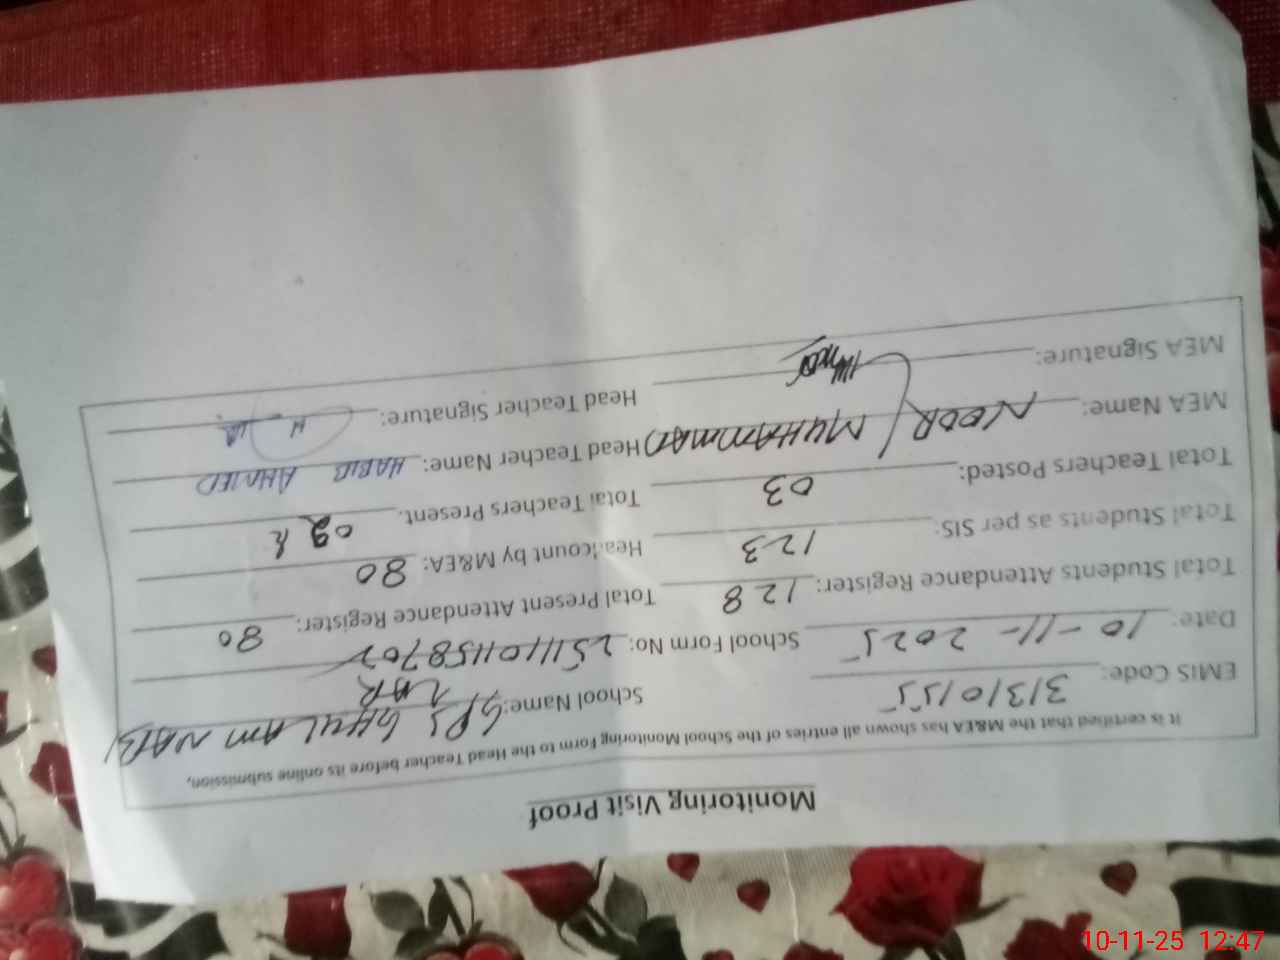 Monitoring Visit Proof
It is certified that the M&EA has shown all entries of the School Monitoring Form to the Head Teacher before its online submission,
EMIS Code: 31310155 School Name: GPS GHULAM NAB
Date: 10-11-2025 School Form No:
Total Students Attendance Register: 128 Total Present Attendance Register: 80
Total Students as per SIS: 123 Headcount by M&EA: 80
Total Teachers Posted: 03 Total Teachers Present. 02
MEA Name: NOOR MUHAMMAD Head Teacher Name: HABIB AHMED
MEA Signature: Head Teacher Signature:
10-11-25 12:47